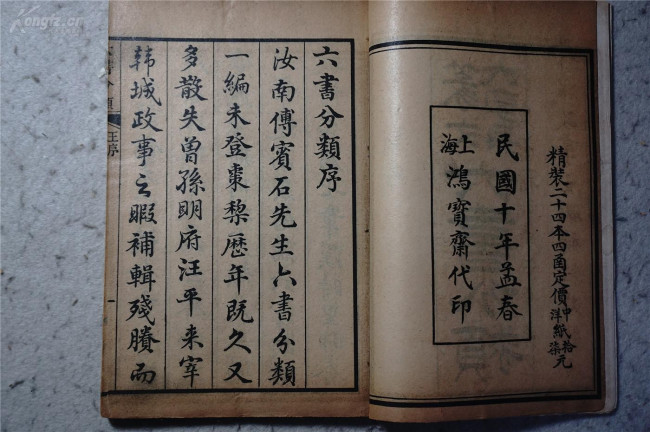 精裝二十四本四函定價中紙拾元洋紙柒元
民國十年孟春
上海鴻寶齋代印
六書分類序
汝南傅賓石先生六書分類
一編未登棗梨歷年既久又
多散失曾孫明府汪平來宰
韩城政事之暇補輯殘賸而
王序
一
Kongfz.cn